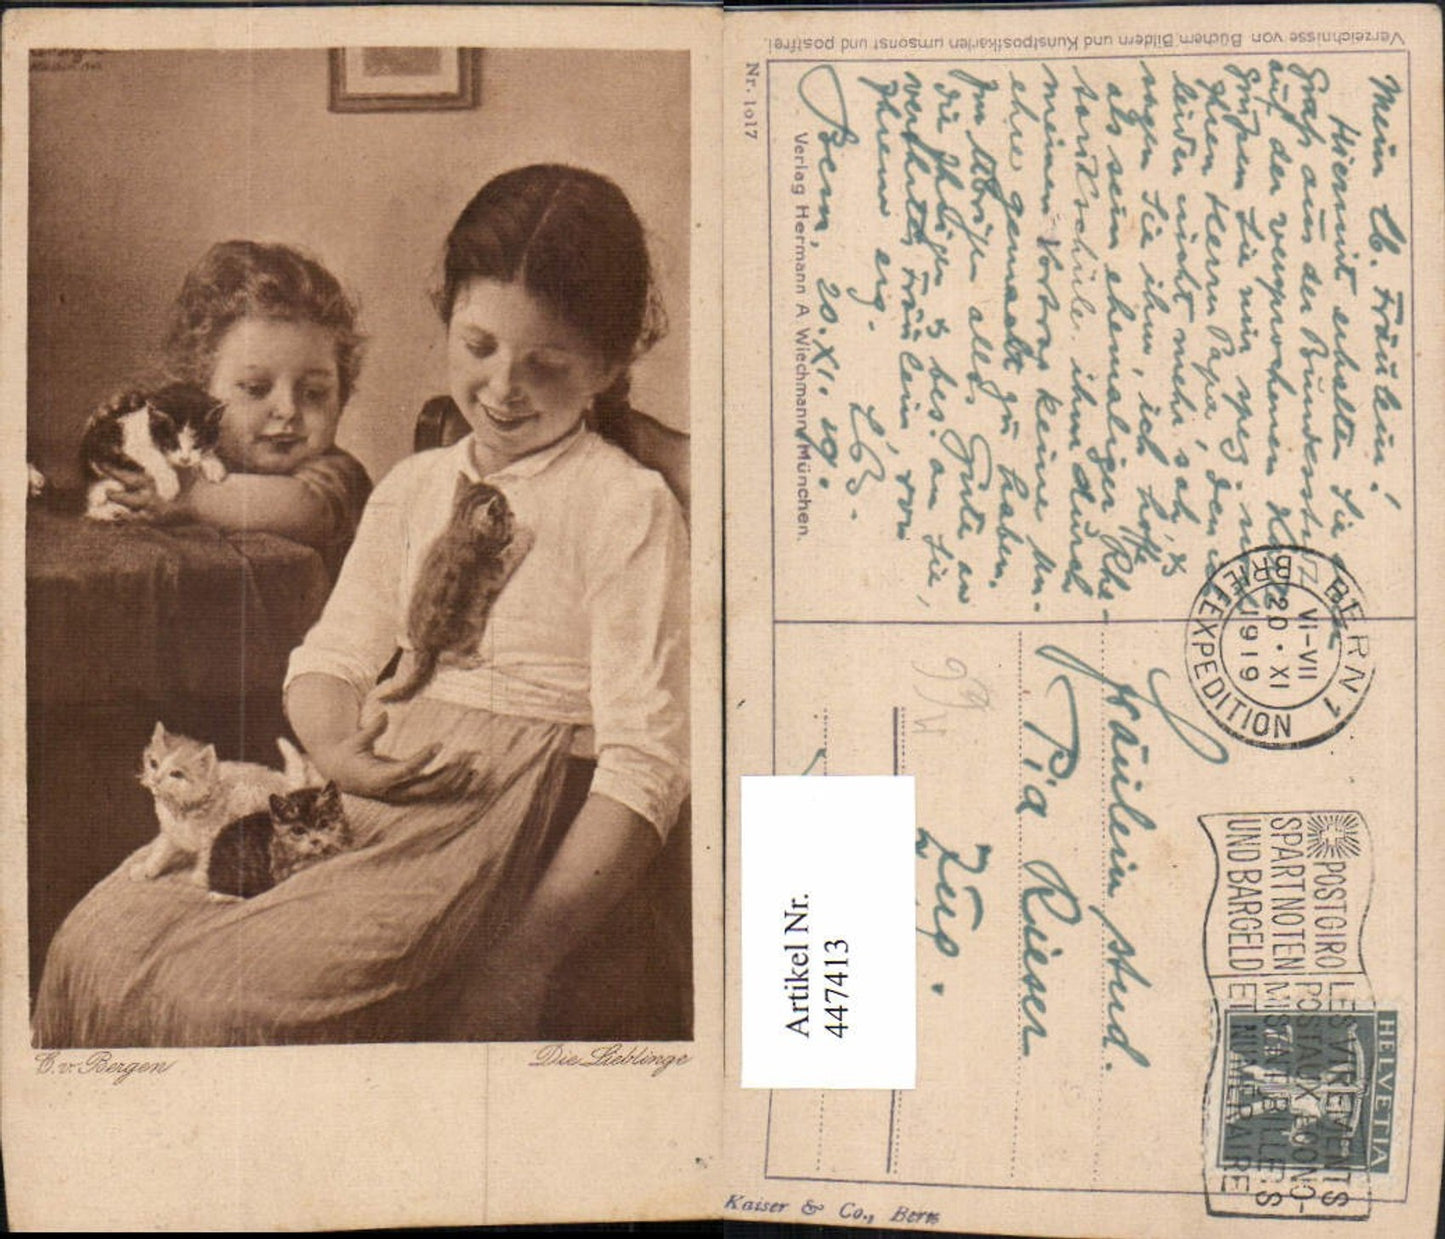 C. v. Bergen
Die Lieblinge
Verzeichnisse von Büchern Bildern und Kunstpostkarten umsonst und postfrei.
Nr. 1017
Verlag Hermann A Wiechmann München.
Mein lb. Fräulein!
Hiermit erhalten Sie
Gruß aus der Bundesstadt
auf der versprochenen
Grüßen Sie mir
Ihren Herrn Papa, den
leider nicht mehr sah, &
sagen Sie ihm, ich hoffe
als sein ehemaliger
ihm durch
meinen Vortrag keine
ehre gemacht zu haben.
Im Übrigen alles Gute an
die Ihrigen & bes. an Sie,
verehrtes Fräulein, von
Ihrem erg.
Bern, 20. XI. 19.
BERN 1
BRIEFEXPEDITION
VI-VII
20 • XI
1919
POSTGIRO
SPART NOTEN
UND BARGELD
LES VIREMENTS
POSTAUX ECONO-
MISENT BILLETS
ET NUMERAIRE
HELVETIA
Fräulein stud.
Pia Rieser
Zug.
Artikel Nr.
447413
Kaiser & Co., Bern